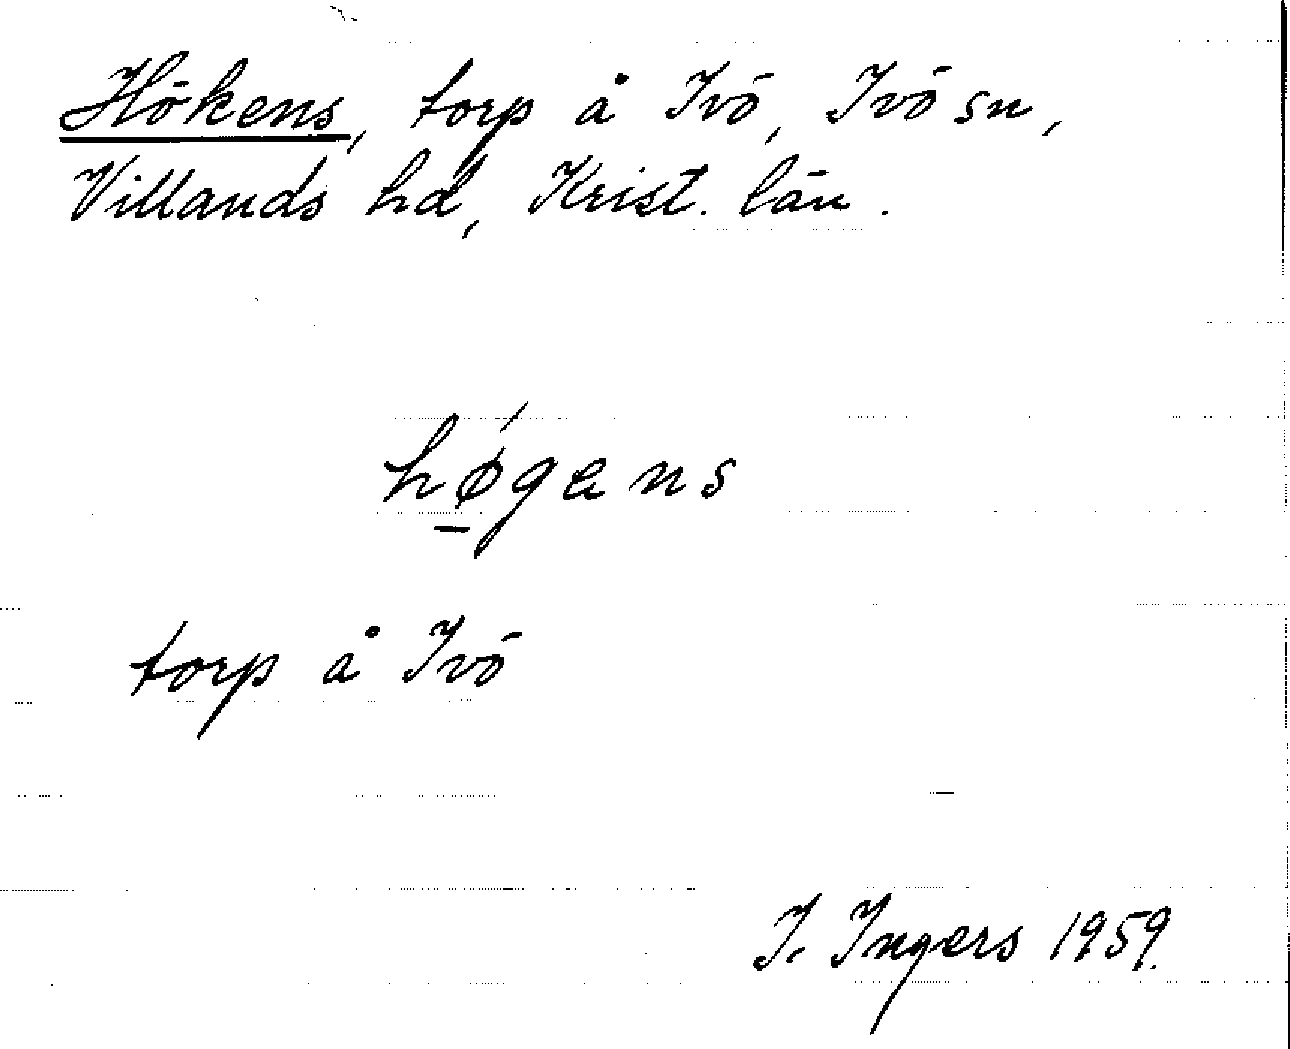 Hökens, torp å Ivö, Ivö sn,
Villands hd, Krist. län.
hǿ̱gans
torp å Ivö
I. Ingers 1959.